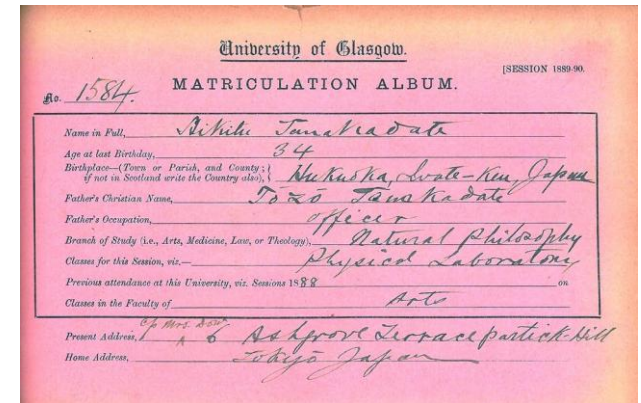 University of Glasgow.
[SESSION 1889-90.
No. 1584. MATRICULATION ALBUM.
Name in Full, Aikitu Tanakadate
Age at last Birthday, 34
Birthplace—(Town or Parish, and County;
if not in Scotland write the Country also), Hukuoka, Iwate-Ken, Japan
Father's Christian Name, Tōzō Tanakadate
Father's Occupation, officer
Branch of Study (i.e., Arts, Medicine, Law, or Theology), Natural Philosophy
Classes for this Session, viz.— Physical Laboratory
Previous attendance at this University, viz. Sessions 1888 on
Classes in the Faculty of Arts
c/o Mrs.
Present Address, 6 Ashgrove Terrace Partick-Hill
Home Address, Tokyō Japan